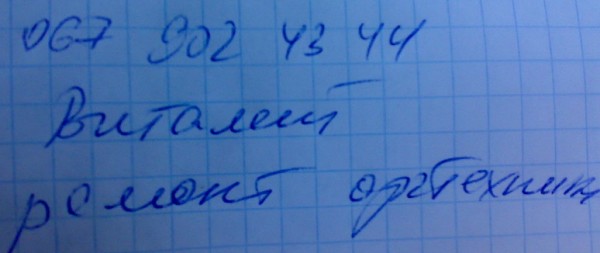 067 902 43 44
Виталий
ремонт оргтехники